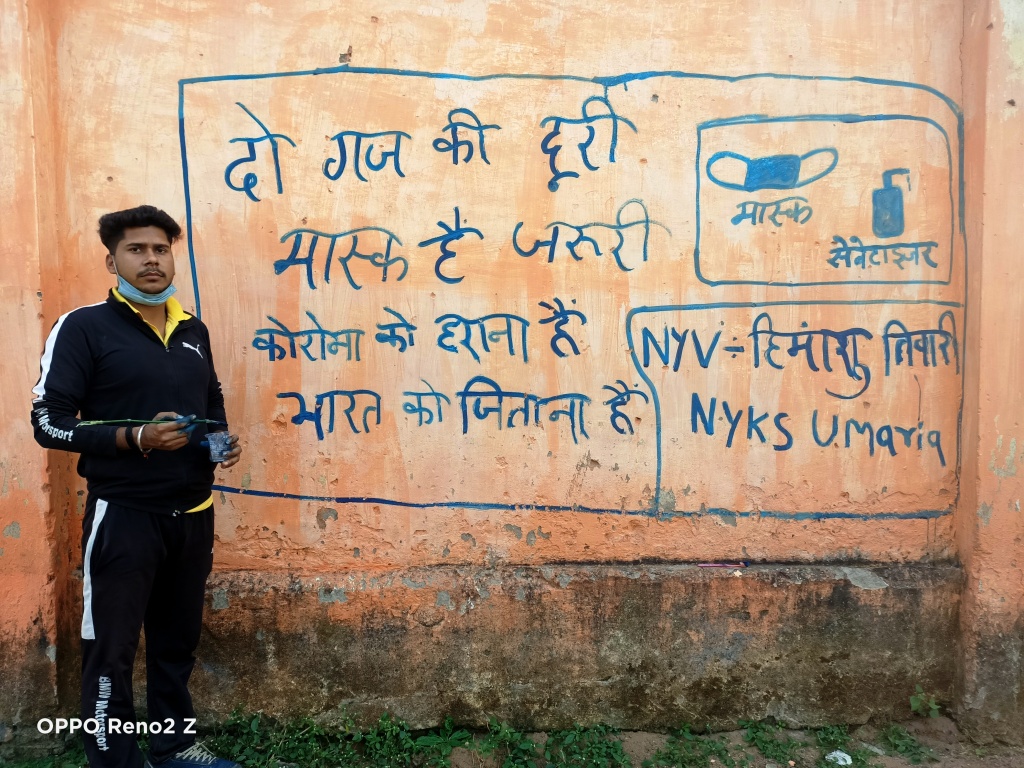 दो गज की दूरी
मास्क हैं जरूरी
कोरोना को हराना हैं
भारत को जिताना हैं
मास्क
सेनेटाइजर
NYV - हिमांशु तिवारी
NYKS Umaria
Motorsport
BMW Motorsport
OPPO Reno2 Z